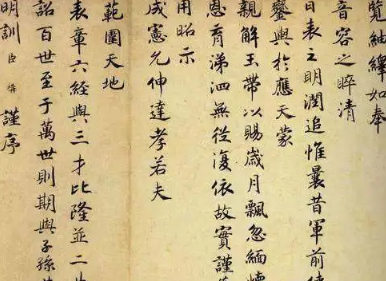 覽紬繹如奉
音容之睟清
日表之明潤追惟曩昔軍前
鑾輿於應天蒙
親解玉帶以賜歲月飄忽緬懷
恩育涕泗無從復依故實謹
用昭示
成憲允伸達孝若夫
範圍天地
表章六經與三才比隆並二
詔百世至于萬世則期與子孫
明訓臣構謹序